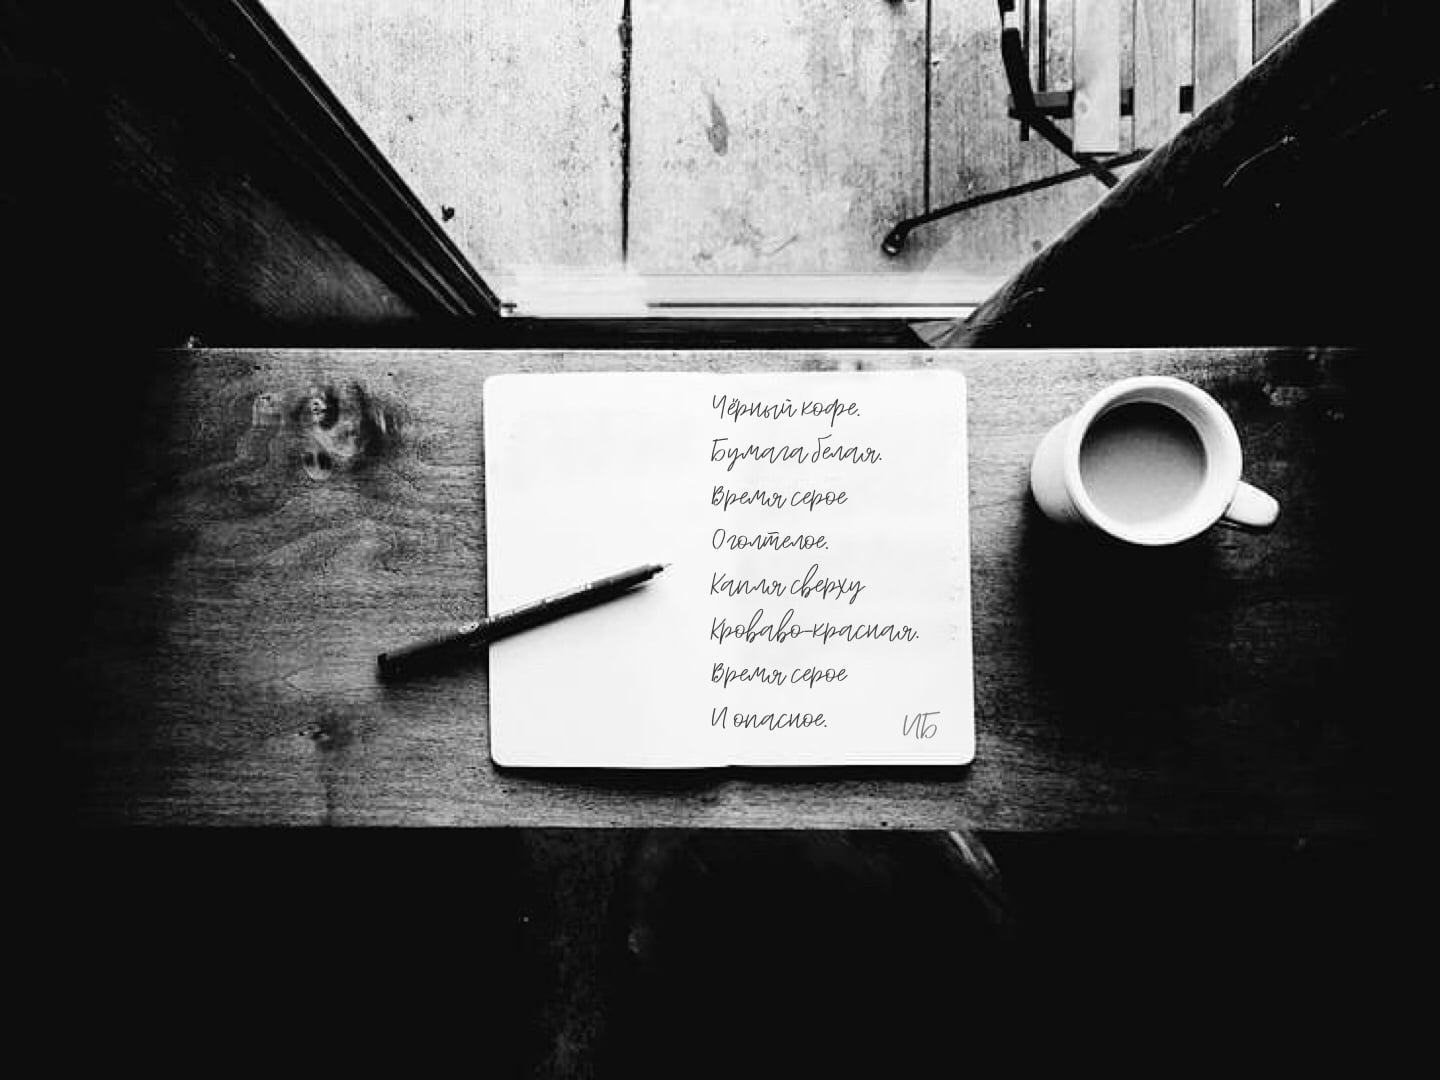 Чёрный кофе.
Бумага белая.
Время серое
Оголтелое.
Капля сверху
Кроваво-красная.
Время серое
И опасное.
ИБ